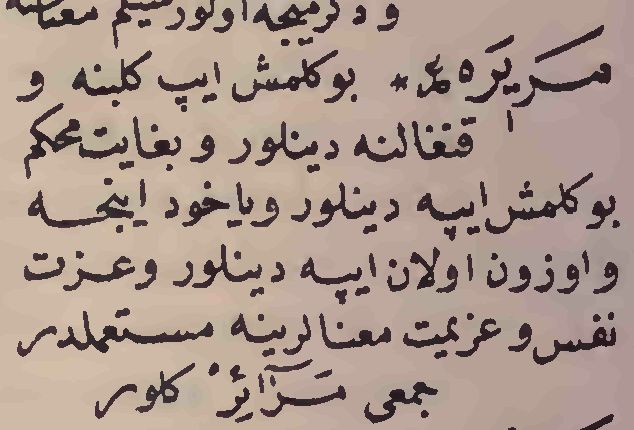 ودكرمنجه اولور مسيلم معناسنه
مَرِيرَه * بوكلمش ايپ كلبنه و
قنغالنه دينلور و بغايت محكم
بوكلمش ايپه دينلور وياخود اينجه
و اوزون اولان ايپه دينلور وعزت
نفس و عزيمت معنالرينه مستعملدر
جمعى مَرَآئِرْ كلور